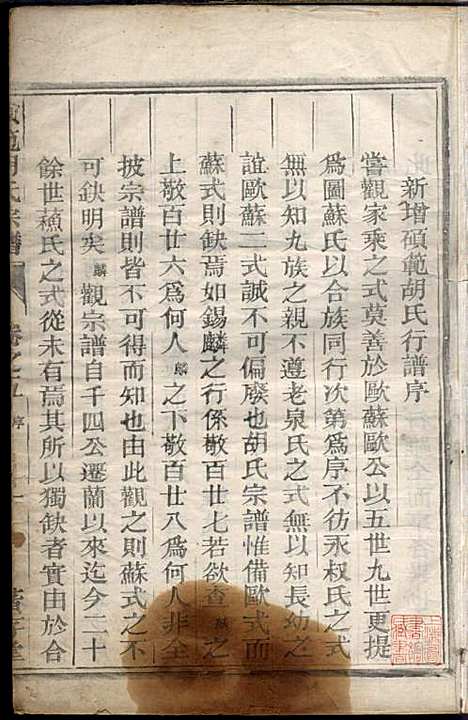 新增碩範胡氏行譜序
嘗觀家乘之式莫善於歐蘇歐公以五世九世更提
為圖蘇氏以合族同行次第為序不彷永叔氏之式
無以知九族之親不遵老泉氏之式無以知長幼之
誼歐蘇二式誠不可偏廢也胡氏宗譜惟備歐式而
蘇式則缺焉如錫麟之行係敬百廿七若欲查麟之
上敬百廿六為何人麟之下敬百廿八為何人非全
披宗譜則皆不可得而知也由此觀之則蘇式之不
可缺明矣麟觀宗譜自千四公遷蘭以來迄今二十
餘世蘓氏之式從未有焉其所以獨缺者實由於合
範胡氏宗譜
卷之九
序
一